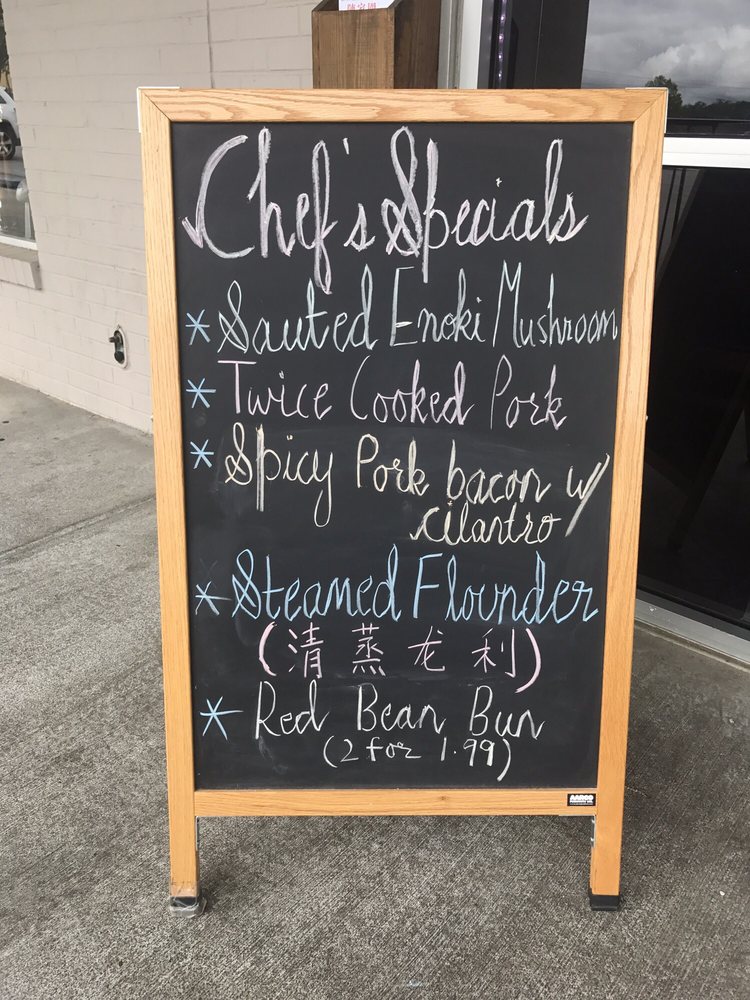 陳家園
Chef's Specials
* Sauted Enoki Mushroom
* Twice Cooked Pork
* Spicy Pork bacon w/
cilantro
* Steamed Flounder
(清蒸龙利)
* Red Bean Bun
(2 for 1.99)
AARCO